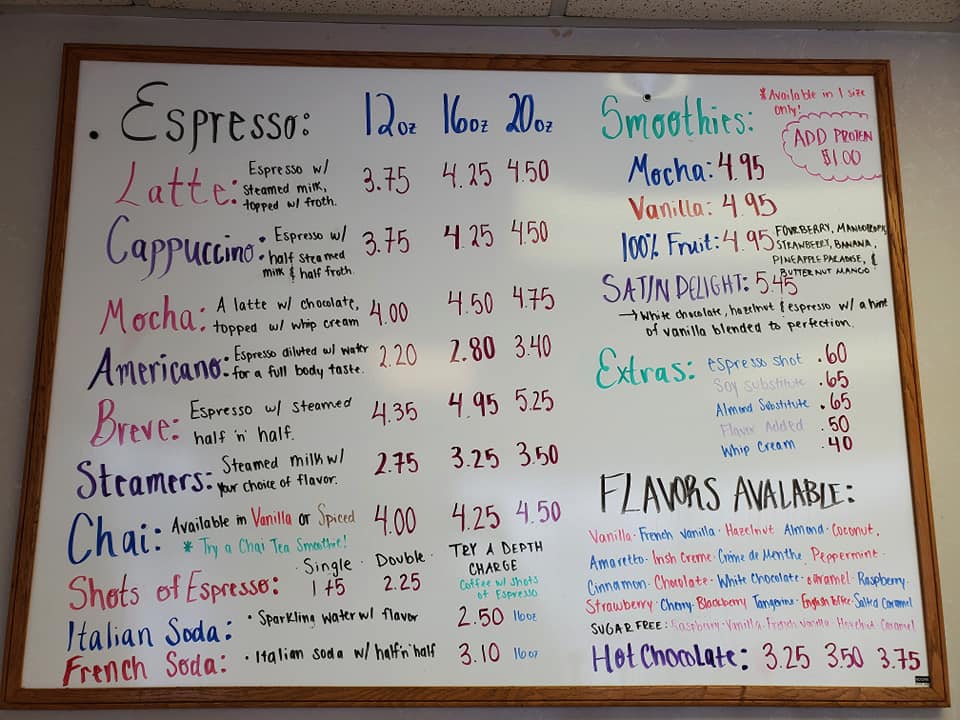 Espresso: 12oz 16oz 20oz
Latte: Espresso w/ steamed milk, topped w/ froth. 3.75 4.25 4.50
Cappuccino: Espresso w/ half steamed milk & half froth. 3.75 4.25 4.50
Mocha: A latte w/ chocolate, topped w/ whip cream 4.00 4.50 4.75
Americano: Espresso diluted w/ water for a full body taste. 2.20 2.80 3.40
Breve: Espresso w/ steamed half 'n' half. 4.35 4.95 5.25
Steamers: Steamed milk w/ your choice of flavor. 2.75 3.25 3.50
Chai: Available in Vanilla or Spiced 4.00 4.25 4.50
* Try a Chai Tea Smoothie!
Shots of Espresso: Single 1.75 Double 2.25
TRY A DEPTH CHARGE
Coffee w/ shots of Espresso
Italian Soda: • Sparkling water w/ flavor 2.50 16oz
French Soda: • Italian soda w/ half 'n' half 3.10 16oz
Smoothies: *Available in 1 size only!
ADD PROTEIN $1.00
Mocha: 4.95
Vanilla: 4.95
100% Fruit: 4.95 FOURBERRY, MANGO
STRAWBERRY, BANANA,
PINEAPPLE PARADISE, &
BUTTERNUT MANGO
SATIN DELIGHT: 5.45
→ White chocolate, hazelnut & espresso w/ a hint
of vanilla blended to perfection.
Extras: espresso shot .60
Soy substitute .65
Almond Substitute .65
Flavor Added .50
Whip Cream .40
FLAVORS AVALABLE:
Vanilla • French Vanilla • Hazelnut Almond • Coconut.
Amaretto • Irish Creme • Crème de Menthe • Peppermint
Cinnamon • Chocolate • White Chocolate • caramel • Raspberry
Strawberry • Cherry • Blackberry Tangerine • English toffee • Salted Caramel
SUGAR FREE: Raspberry • Vanilla • French Vanilla Hazelnut Caramel
HOT CHOCOLATE: 3.25 3.50 3.75